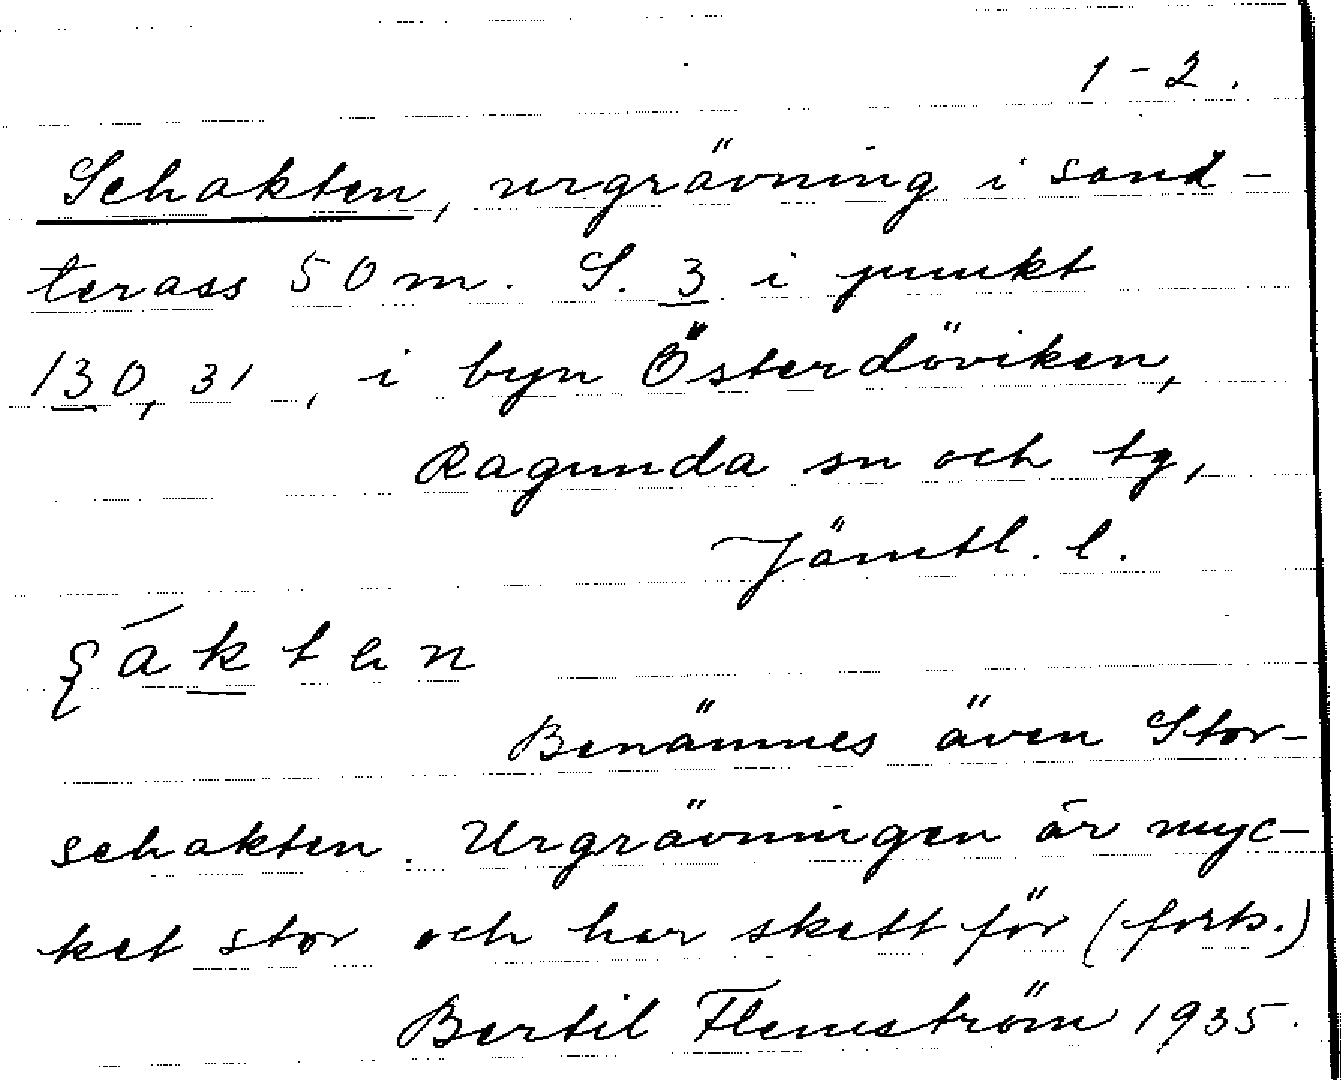 1-2.
Schakten, urgrävning i sand-
terass 50 m. S. 3 i punkt
130, 31, i byn Österdöviken,
Ragunda sn och tg,
Jämtl. l.
ʂákten
Benämnes även Stor-
schakten. Urgrävningen är myc-
ket stor och har skett för (forts.)
Bertil Flemström 1935.